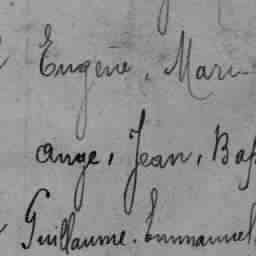 Eugène, Marie
ange, Jean, Bap
Guillaume. Emmanuel